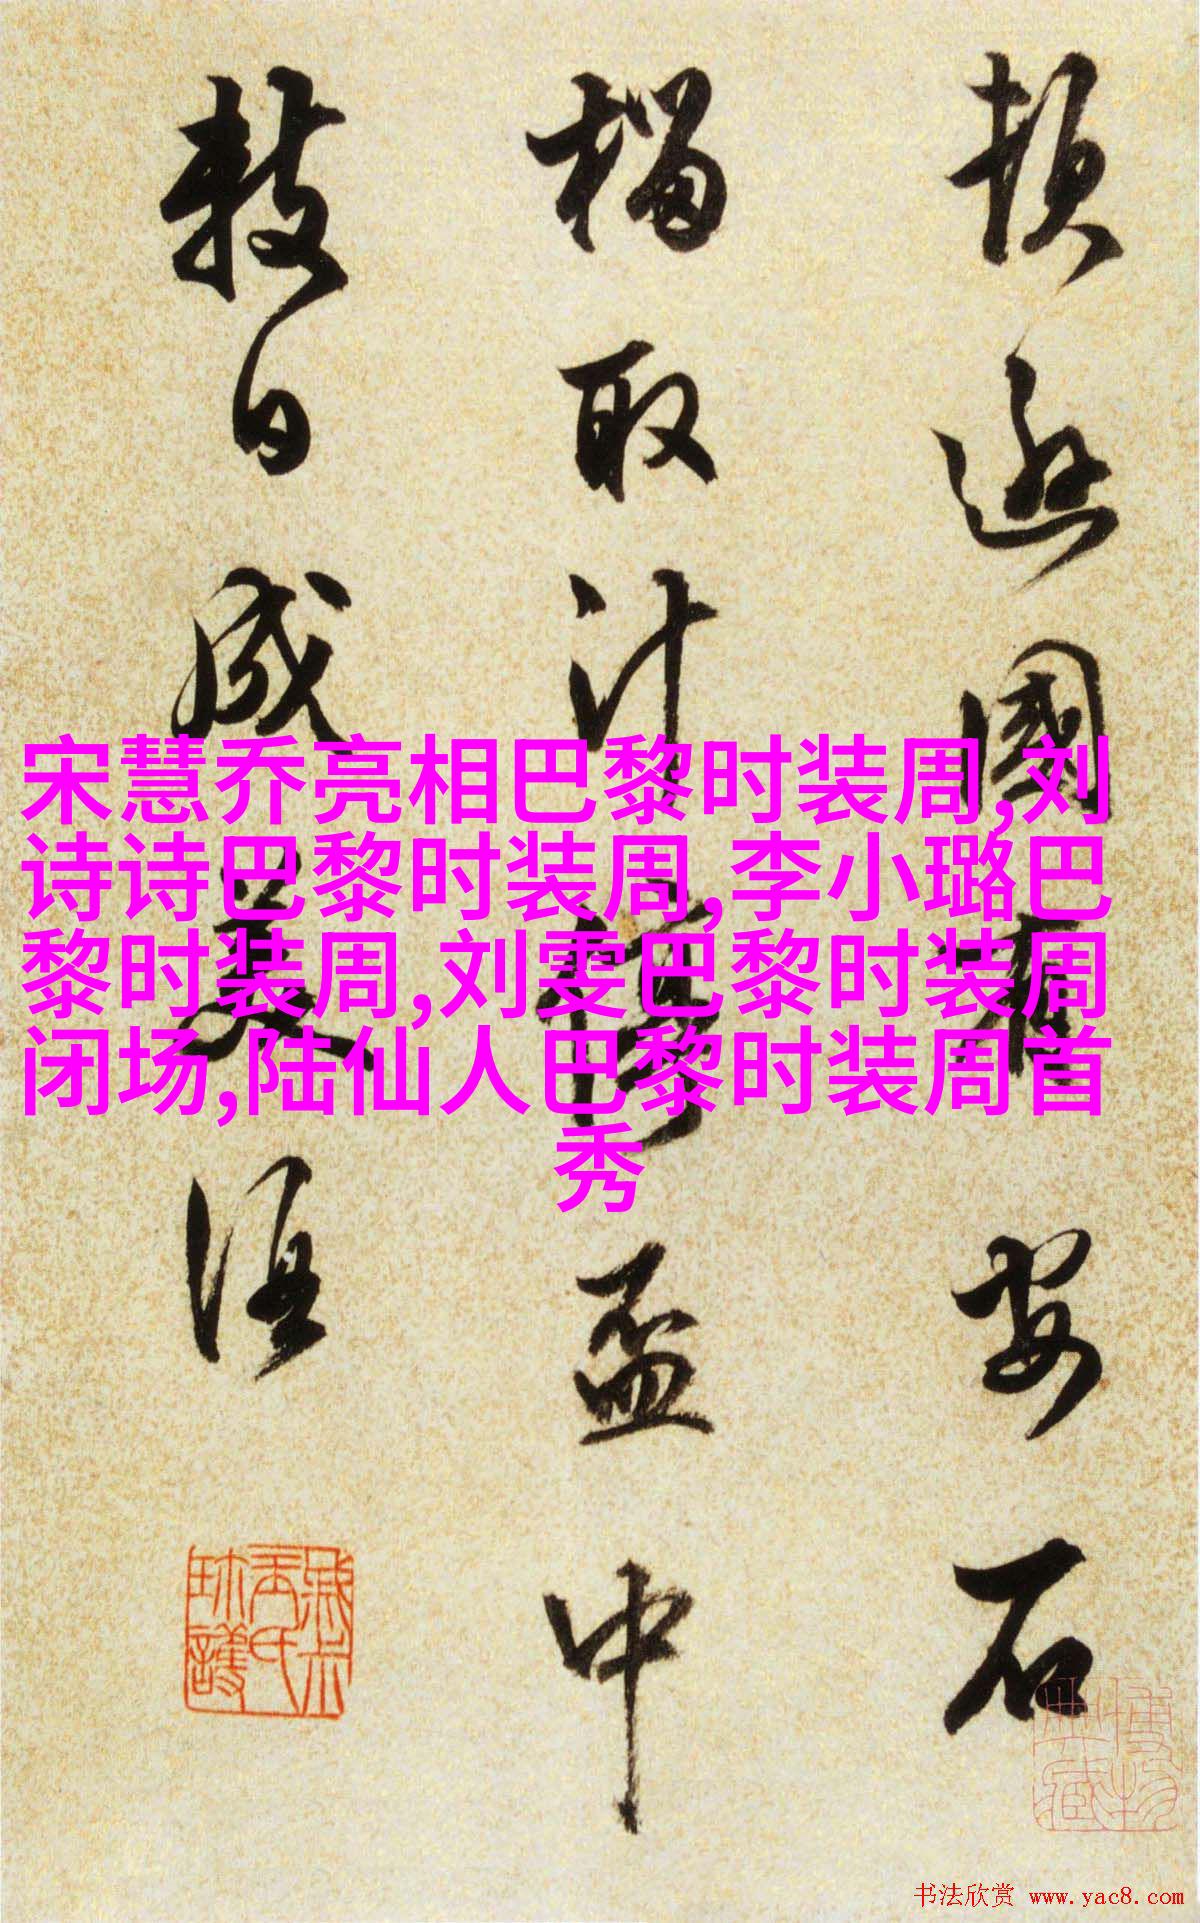 頓遜國有安石
榴取汁停盃中
數日成美酒
宋慧乔亮相巴黎时装周,刘
诗诗巴黎时装周,李小璐巴
黎时装周,刘雯巴黎时装周
闭场,陆仙人巴黎时装周首
秀
书法欣赏 www.yac8.com